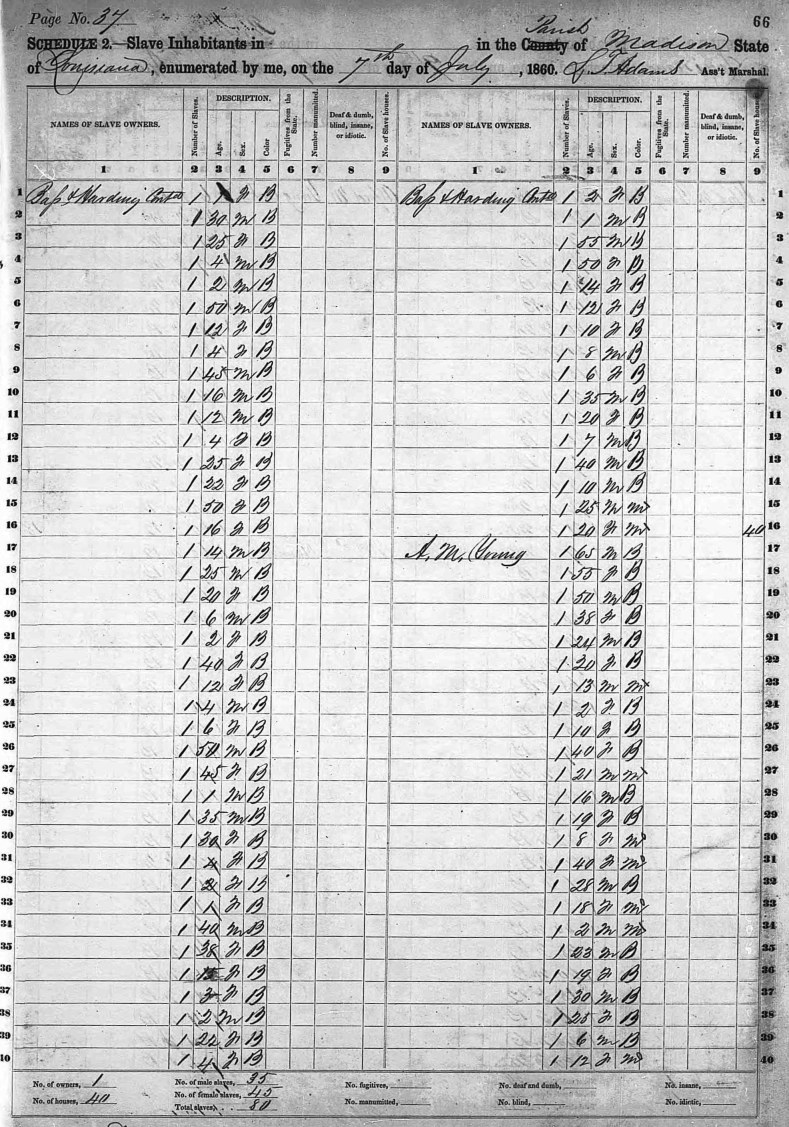 Page No. 37
66
SCHEDULE 2.—Slave Inhabitants in in the County Parish of Madison State
of Louisiana, enumerated by me, on the 7th day of July, 1860. L. T. Adams Ass't Marshal.
NAMES OF SLAVE OWNERS. Number of Slaves. DESCRIPTION. Age. Sex. Color Fugitives from the State. Number manumitted. Deaf & dumb, blind, insane, or idiotic. No. of Slave houses. NAMES OF SLAVE OWNERS. Number of Slaves. DESCRIPTION. Age. Sex. Color. Fugitives from the State. Number manumitted. Deaf & dumb, blind, insane, or idiotic. No. of Slave houses.
1 2 3 4 5 6 7 8 9 1 2 3 4 5 6 7 8 9
1 Bass & Harding 1 1 F B Bass & Harding 1 2 F B 1
2 1 30 M B 1 1 M B 2
3 1 25 F B 1 55 M B 3
4 1 4 M B 1 50 F B 4
5 1 2 M B 1 14 F B 5
6 1 50 M B 1 12 F B 6
7 1 12 F B 1 10 F B 7
8 1 4 F B 1 8 M B 8
9 1 45 M B 1 6 F B 9
10 1 16 M B 1 35 M B 10
11 1 12 M B 1 20 F B 11
12 1 4 F B 1 7 M B 12
13 1 25 F B 1 40 M B 13
14 1 22 F B 1 10 M B 14
15 1 50 F B 1 25 M M 15
16 1 16 F B 1 20 F M 40 16
17 1 14 M B A. M. Young 1 65 M B 17
18 1 25 M B 1 55 F B 18
19 1 20 F B 1 50 M B 19
20 1 6 M B 1 38 F B 20
21 1 2 F B 1 24 M B 21
22 1 40 F B 1 20 F B 22
23 1 12 F B 1 13 M M 23
24 1 4 M B 1 2 F B 24
25 1 6 F B 1 10 F B 25
26 1 50 M B 1 40 F B 26
27 1 45 F B 1 21 M M 27
28 1 1 M B 1 16 M B 28
29 1 35 M B 1 19 F B 29
30 1 30 F B 1 8 F M 30
31 1 4 F B 1 40 F M 31
32 1 2 F B 1 28 M B 32
33 1 1 F B 1 18 F M 33
34 1 40 M B 1 2 M M 34
35 1 38 F B 1 23 M B 35
36 1 F B 1 19 F B 36
37 1 3 F B 1 30 M B 37
38 1 2 M B 1 25 F B 38
39 1 22 F B 1 6 M B 39
40 1 4 F B 1 12 F M 40
No. of owners, 1 No. of male slaves, 35 No. fugitives, No. deaf and dumb, No. insane,
No. of houses, 40 No. of female slaves, 45 No. manumitted, No. blind, No. idiotic,
Total slaves, 80